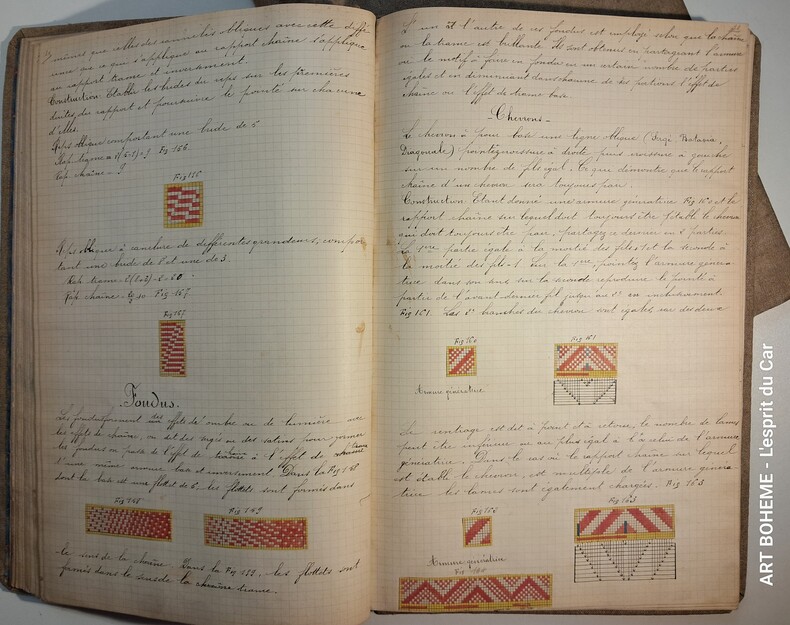 mêmes que celles des cannelés obliques avec cette diffé
rence que ce qui s'applique au rapport chaîne s'applique
au rapport trame et inversement.
Construction: Etablir les brides du reps sur les premières
duites du rapport et poursuivre le pointé sur chacune
d'elles.
Reps oblique comportant une bride de 5
Rap. trame = Fig 156.
Rap. chaîne = 9
Fig 156
Reps oblique à cannelure de différentes grandeurs, compor
tant une bride de 8 et une de 3.
Rap. trame = 2(8+2) = 20.
Rap. chaîne = 10 Fig 157.
Fig 157
Fondus.
Les fondus forment des effets d'ombre ou de lumière avec
les effets de chaîne, ou
les fondus on passe de l'effet de trame à l'effet de chaîne
d'une même armure base et inversement. Dans la Fig 158
dont la base est une flotté de 5, les flottés sont formés dans
Fig 158
Fig 159
le sens de la chaîne. Dans la Fig 159, les flottés sont
formés dans le sens de la trame.
L'un et l'autre de ces fondus est employé selon que la chaîne
ou la trame est brillante. Ils sont obtenus en partageant l'armure
ou le motif à faire en fondu en un certain nombre de parties
égales et en diminuant dans chacune de ces parties l'effet de
chaîne ou l'effet de trame base.
-Chevrons-
Le chevron a pour base une ligne oblique (Sergé, Batavia,
Diagonale) pointée croissure à droite puis croissure à gauche
sur un nombre de fils égal. Ce qui démontre que le rapport
chaîne d'un chevron sera toujours pair.
Construction Etant donné une armure génératrice Fig 160 et le
rapport chaîne sur lequel doit toujours être établi le chevron
qui doit toujours être pair, partagez ce dernier en 2 parties.
La 1ère partie égale à la moitié des fils +1 et la seconde à
la moitié des fils -1. Sur la 1ère pointez l'armure généra-
trice dans son sens sur la seconde reproduire le pointé à
partir de l'avant dernier fil jusqu'au 2e inclusivement.
Fig 161. Les 2 branches du chevron sont égales, une des deux
Fig 160
Fig 161
Armure génératrice
Le rentrage est dit à point et à retour, le nombre de lames
peut être inférieur ou au plus égal à celui de l'armure
génératrice. Dans le cas où le rapport chaîne sur lequel
est établi le chevron, est multiple de l'armure généra
trice les lames sont également chargées. Fig 163
Fig 162
Fig 163
Armure génératrice
Fig 164
ART BOHEME - L'esprit du Car